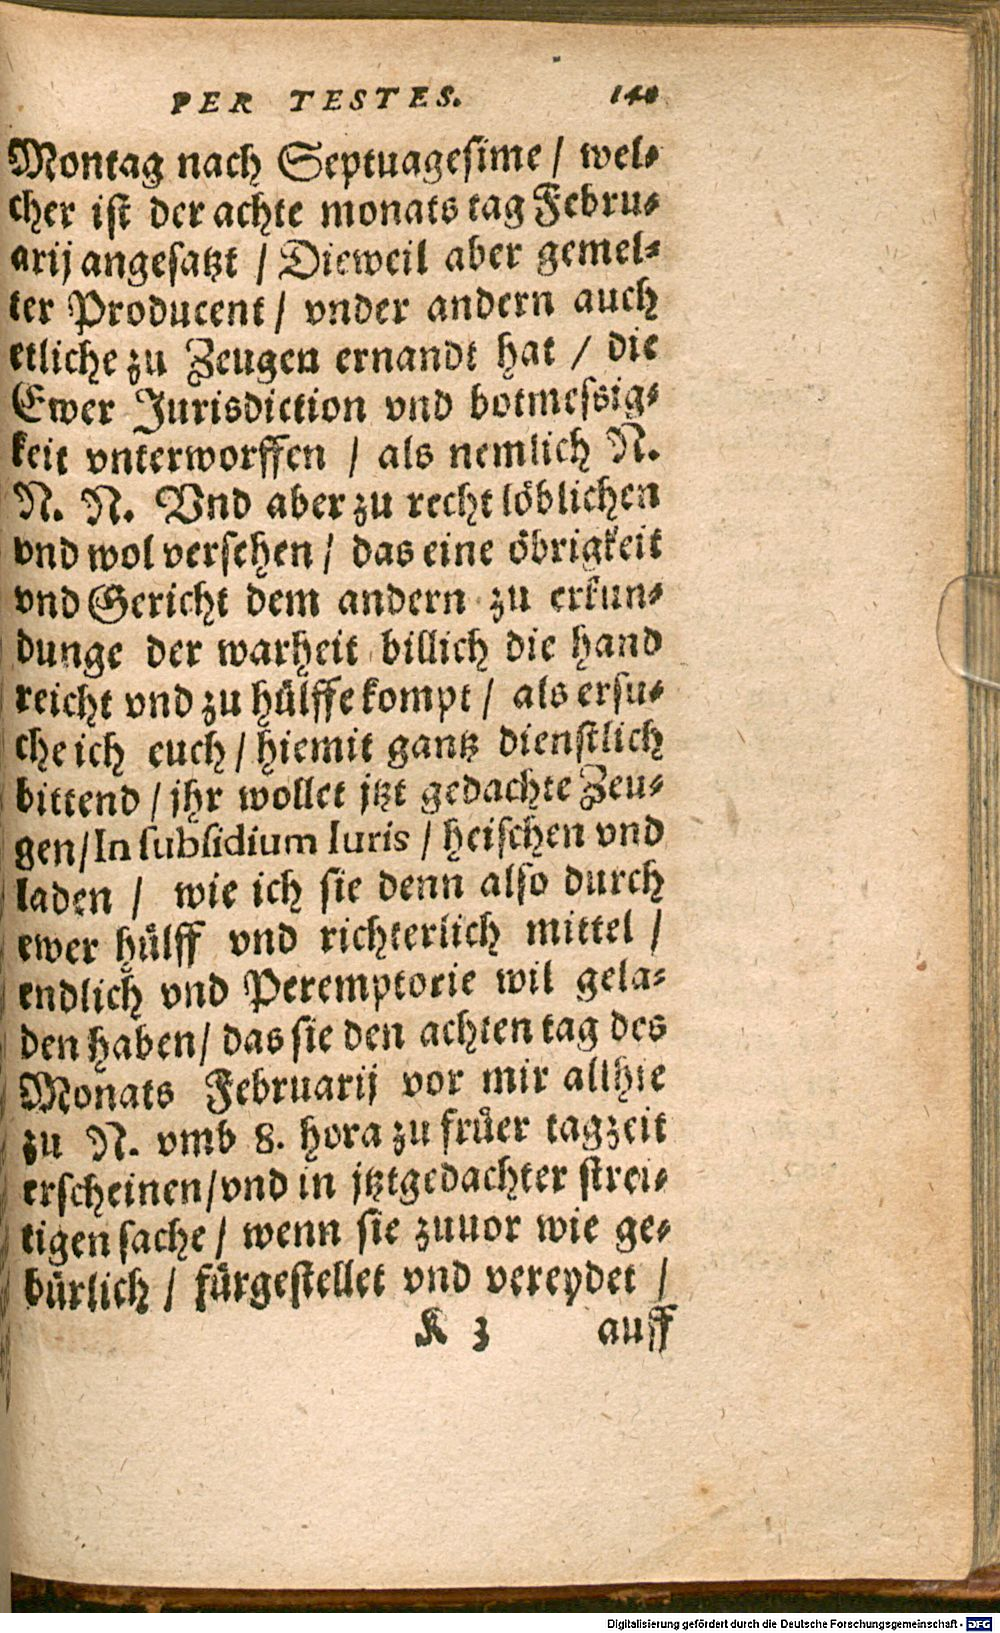 PER TESTES. 140
Montag nach Septuagesime / wel-
cher ist der achte monats tag Febru-
arij angesatzt / Dieweil aber gemel-
ter Producent / vnder andern auch
etliche zu Zeugen ernandt hat / die
Ewer Jurisdiction vnd botmessig-
keit vnterworffen / als nemlich N.
N. N. Vnd aber zu recht löblichen
vnd wol versehen / das eine öbrigkeit
vnd Gericht dem andern zu erkun-
dunge der warheit billich die hand
reicht vnd zu hülffe kompt / als ersu-
che ich euch / hiemit gantz dienstlich
bittend / jhr wollet jtzt gedachte Zeu-
gen / In subsidium Iuris / heischen vnd
laden / wie ich sie denn also durch
ewer hülff vnd richterlich mittel /
endlich vnd Peremptorie wil gela-
den haben / das sie den achten tag des
Monats Februarij vor mir allhie
zu N. vmb 8. hora zu früer tagzeit
erscheinen / vnd in jtztgedachter strei-
tigen sache / wenn sie zuuor wie ge-
bürlich / fürgestellet vnd vereydet /
K 3 auff
Digitalisierung gefördert durch die Deutsche Forschungsgemeinschaft - DFG